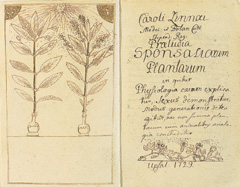 Caroli Linnæi
Medic: et Botan. Cult
Praludia
Sponsaliorum
Plantarum
in quibus
Physiologia earum explica-
tur, Sexus demonstratur,
modus generationis dete-
gitur, nec non summa plan-
tarum cum animalibus analo-
gia concluditur
Upsal 1729